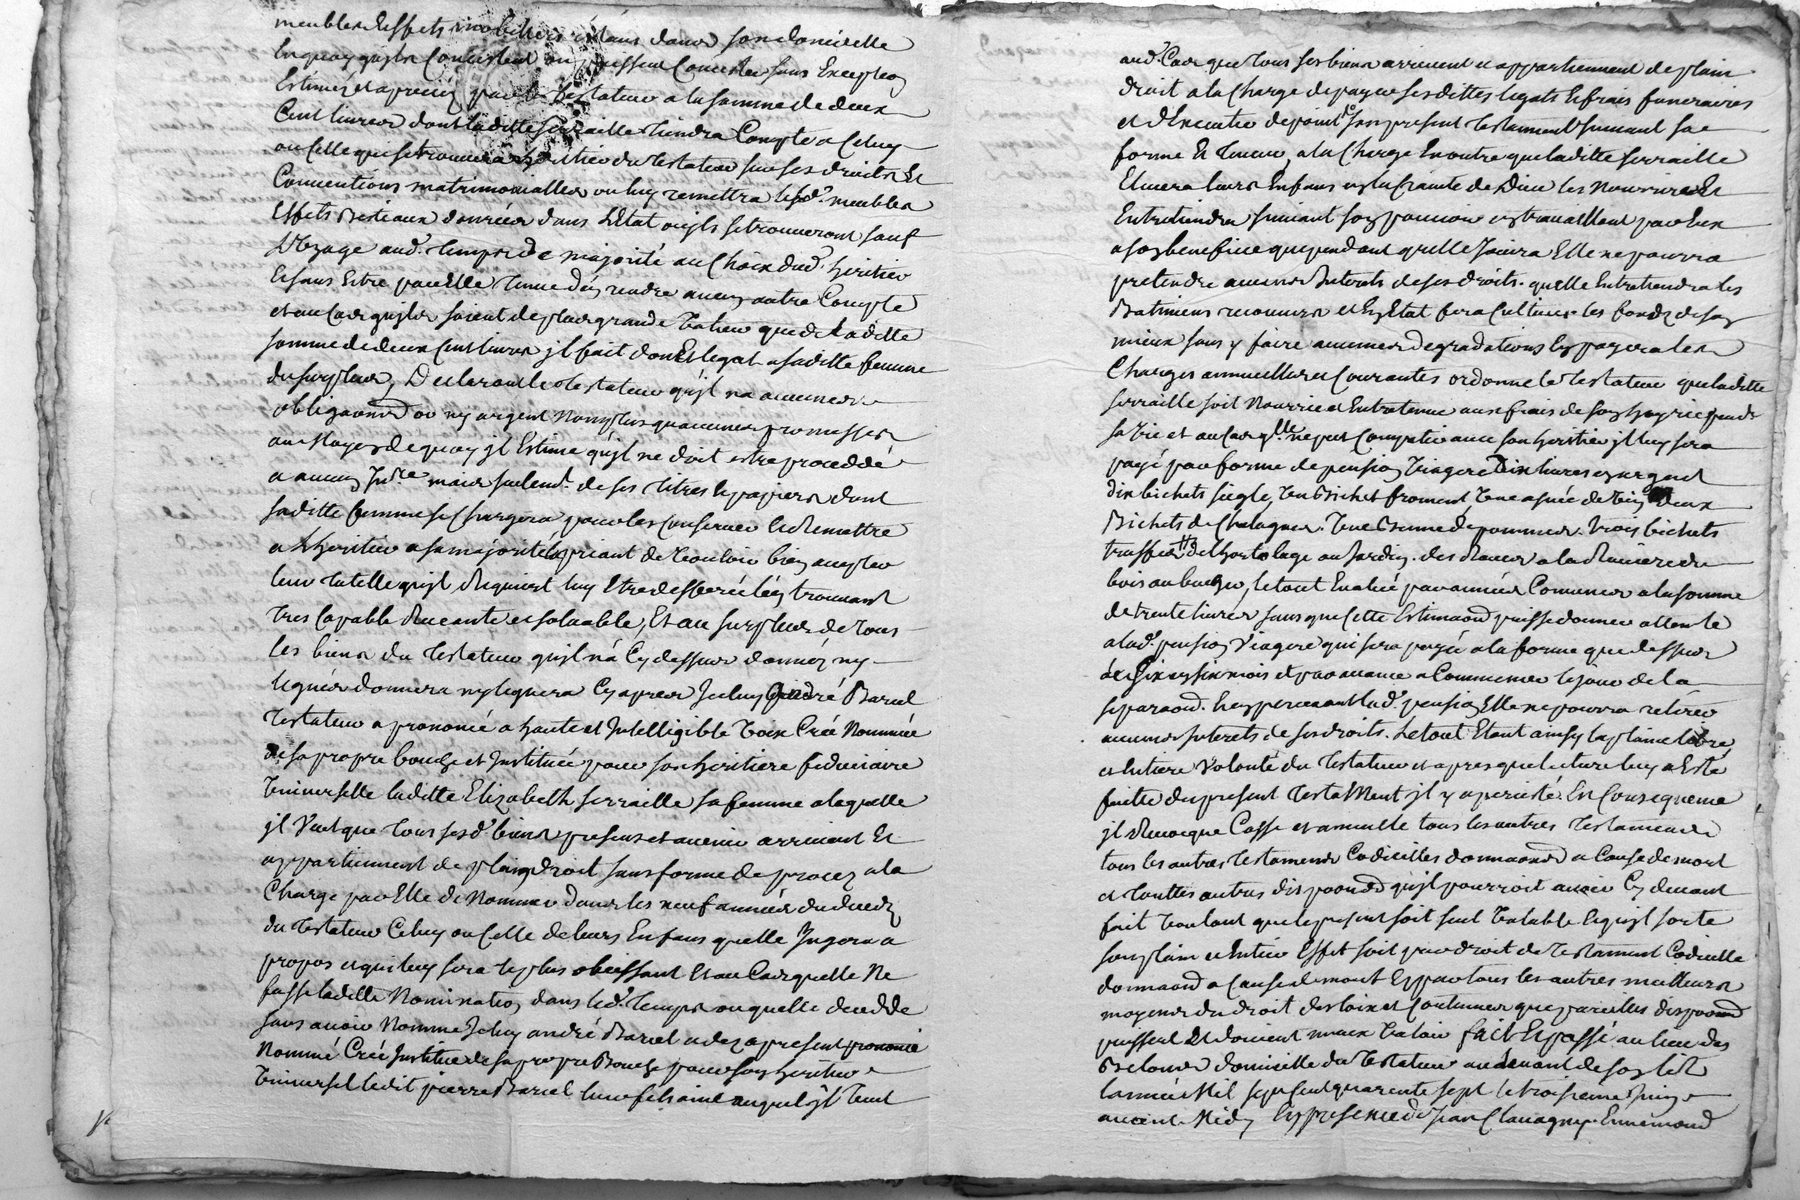 meubles Effets mobiliers étans dans son domicille
En quoy quils Consistent ou puissent Consister sans Exception
Estimés et apreciés par le Testateur a la somme de deux
Cent livres dont laditte serraille tiendra Compte a Celuy
ou Celle qui se trouvera heritier du Testateur sur ses droits Et
Conventions matrimonialles ou luy remettra lesd. meubles
Effets Bestiaux danrées dans L'Etat ou jls se trouveront sauf
L'Uzage aud. temps de majorité au Choix dud. heritier
Et sans Estre par Elle tenue d'En rendre aucun autre Compte
et au Cas quils soient de plus grande Valeur que de laditte
somme de deux Cent livres jl fait don Et legat a saditte femme
du surplus, Declarant le Testateur qu'jl n'a aucunes
obligaons ny argent Non plus qu'aucunes promesses
au Moyen de quoy jl Estime qu'jl ne doit estre proceddé
a aucun Jnre mais seulent. de ses titres Et papiers dont
saditte femme se Chargera pour les Conserver Et Remettre
a L'heritier a sa majorité la priant de Vouloir bien accepter
leur tutelle qu'jl Requiert luy Etre defferée l'En trouvant
tres Capable Recante et solvable, Et au surplus de tous
les biens du Testateur qu'jl n'a Cy dessus donnéz ny
legués donnera ny leguera Cy apres Jceluy andré Barcel
Testateur a prononcé a haute et Jntelligible Voix Créé Nommée
de sa propre bouche et Jnstituée pour son heritiere fiduciaire
Universelle laditte Elizabeth serraille sa femme a laquelle
jl Veut que tous sesd. biens presens et avenir arrivent Et
appartiennent de plain droit sans forme de procez a la
Charge par Elle de Nommer dans les neuf années du decedz
du Testateur Celuy ou Celle de leurs Enfans quelle Jugera a
propos et qui luy sera le plus obeissant Et au Cas quelle Ne
fasse laditte Nomination dans led. temps ou quelle decedde
sans avoir Nommé Jceluy andré Barcel a dez a present prononcé
Nommé Créé Jnstitué de sa propre Bouche pour son heritier
Universel ledit pierre Barcel leur fils aîné auquel jl Veut
aud. Cas que tous ses biens arrivent et appartiennent de plain
droit a la Charge de payer ses dittes legats Et frais funeraires
et d'Executer de point son present testament suivant sa
forme Et teneur, a la Charge En outre que laditte serraille
Elevera leurs Enfans En la Crainte de Dieu les Nourrira Et
Entretiendra suivant son pouvoir En travaillant par Eux
a son benefice que pendant qu'elle Jouira Elle ne pourra
pretendre aucuns Jnterests de ses droits. quelle Entretiendra les
Batimens recouverts et En Etat fera Cultiver les fonds de son
mieux sans y faire aucunes degradations En payera les
Charges annuelles et Courantes ordonne le Testateur que laditte
serraille soit Nourrie et Entretenue aux frais de son hoyrie pendt
sa Vie et au Cas qlle ne peut Compatir avec son heritier jl luy sera
payé par forme de pension Viagere Dix livres En argent
dix bichets siegle, Un Bichet froment Une asnée de Vin, deux
Bichets de Chatagnes. Une Benne de pommes. trois bichets
truffes de L'hortolage au Jardin. des Raves a la Raviere du
bois au bucher, le tout Evalué par année Commune a la somme
de trente livres sans que Cette Estimaon puisse donner atteinte
a lad. pension Viagere qui sera payée a la forme que dessus
de Six en Six mois et par avance a Commencer le jour de la
separaon. En percevant lad. pension Elle ne pourra retirer
aucuns Jnterets de ses droits. Le tout Etant ainsy la plaine libre
et Entiere Volonté du Testateur et apres que lecture luy a Eté
faitte du present testament jl y a persisté En Consequence
jl Revoque Casse et annulle tous les autres testamens
tous les autres testamens Codicilles donnaons a Cause de mort
et touttes autres dispoons qu'jl pourroit avoir Cy devant
fait Voulant que le present soit seul Valable Et qu'jl sorte
son plain et Entier Effet soit par droit de testament Codicille
donnaon a Cause de mort Et par tous les autres meilleurs
moyens du droit des loix et Coutumes que pareilles dispoons
puissent Et doivent mieux Valoir fait Et passé au lieu des
Belomes domicille du Testateur au devant de son lit
L'année Mil sept cent quarente sept le troisieme
avant Midy En presence de Jean Clavagny. Ennemond